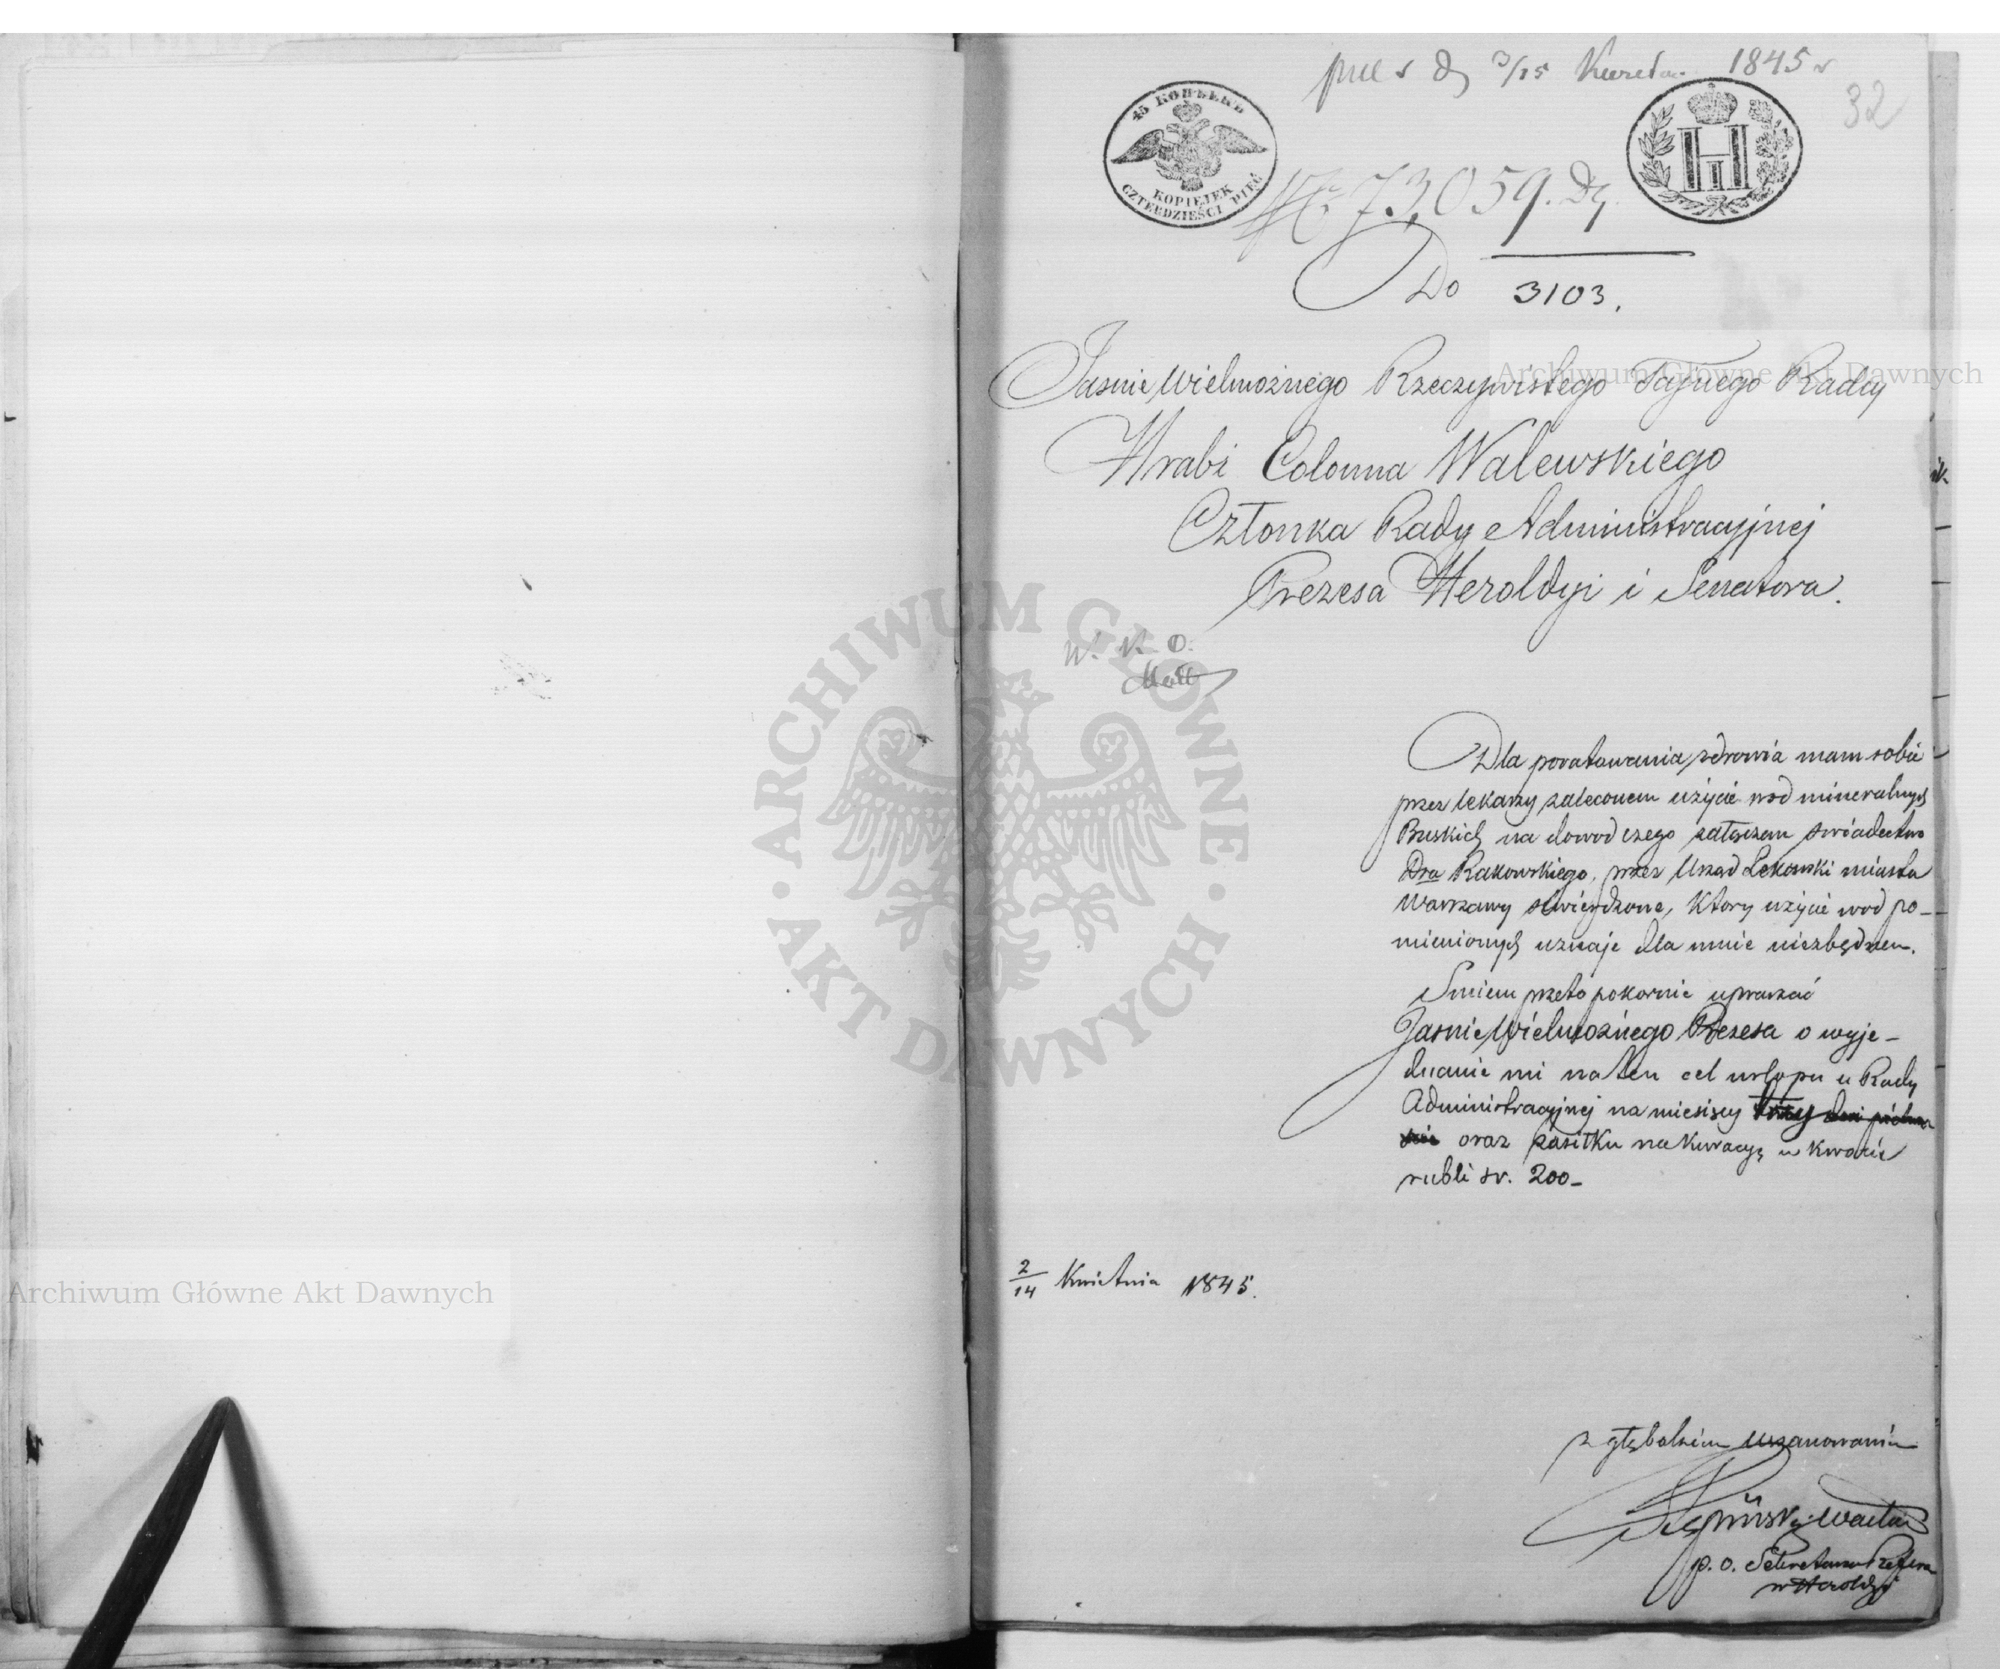 d 3/15 Kwietn. 1845 r
32
45 КОПѢЕКЪ
KOPIEJEK
CZTERDZIEŚCI PIĘĆ
No 73,059.
3103.
Do
Jaśnie Wielmożnego Rzeczywistego Tajnego Radcy
Hrabi Colonna Walewskiego
Członka Rady Administracyjnej
Prezesa Heroldyi i Senatora.
Dla poratowania zdrowia mam sobie
przez lekarzy zaleconem użycie wod mineralnych
Buskich na dowod czego załączam świadectwo
Dra Rakowskiego, przez Urząd Lekarski miasta
Warszawy stwierdzone, który użycie wod po-
mienionych uznaje dla mnie niezbędnem.
Smiem przeto pokornie upraszać
Jaśnie Wielmożnego Prezesa o wyje-
dnanie mi na ten cel urlopu u Rady
Administracyjnej na miesięcy trzy
oraz zasiłku na kuracyą w kwocie
rubli sr. 200-
2/14 Kwietnia 1845.
z głębokiem uszanowaniem
p. o. Sekretarza
w Heroldyi
Archiwum Główne Akt Dawnych
Archiwum Główne Akt Dawnych
ARCHIWUM GŁÓWNE
AKT DAWNYCH